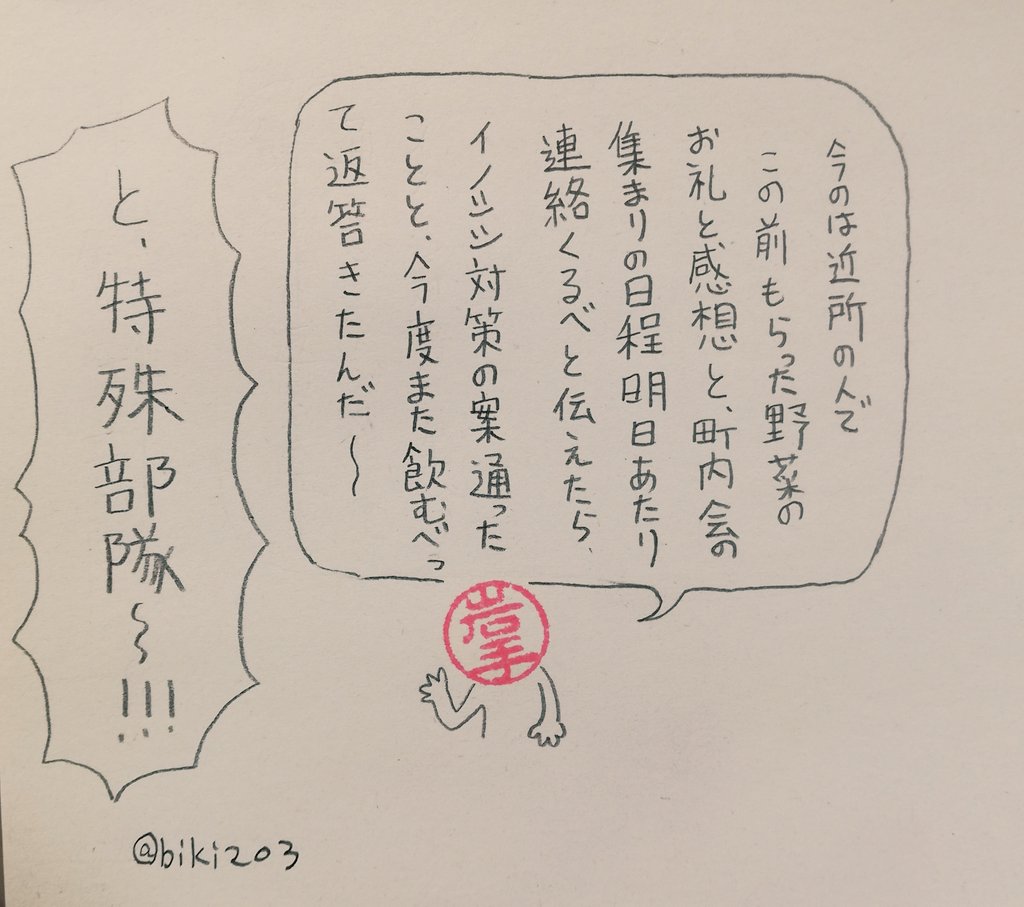 今のは近所の人で
この前もらった野菜の
お礼と感想と、町内会の
集まりの日程明日あたり
連絡くるべと伝えたら、
イノシシ対策の案通った
ことと、今度また飲むべっ
て返答きたんだ〜
と、特殊部隊〜!!!
岩手
@biki203